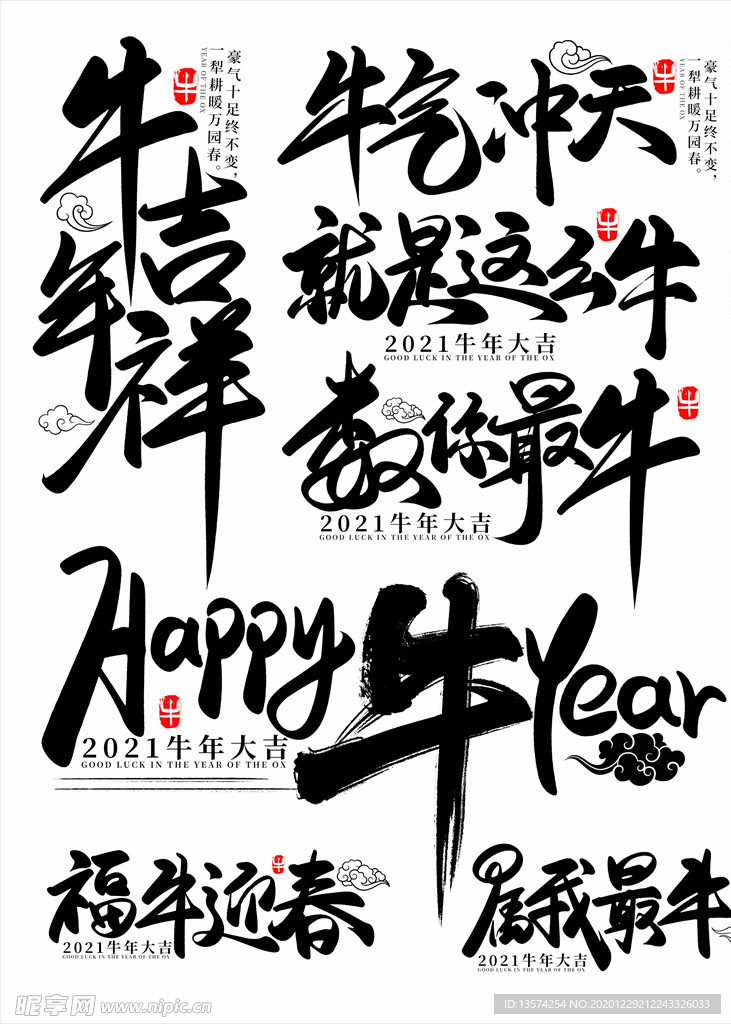 牛年吉祥
牛
豪气十足终不变，
一犁耕暖万园春。
YEAR OF THE OX
牛气冲天
牛
豪气十足终不变，
一犁耕暖万园春。
YEAR OF THE OX
就是这么牛
牛
2021牛年大吉
GOOD LUCK IN THE YEAR OF THE OX
数你最牛
牛
2021牛年大吉
GOOD LUCK IN THE YEAR OF THE OX
Happy牛Year
牛
2021牛年大吉
GOOD LUCK IN THE YEAR OF THE OX
福牛迎春
牛
2021牛年大吉
GOOD LUCK IN THE YEAR OF THE OX
属我最牛
2021牛年大吉
GOOD LUCK IN THE YEAR OF THE OX
昵享网 www.nipic.cn
ID:13574254 NO:20201229212243326033